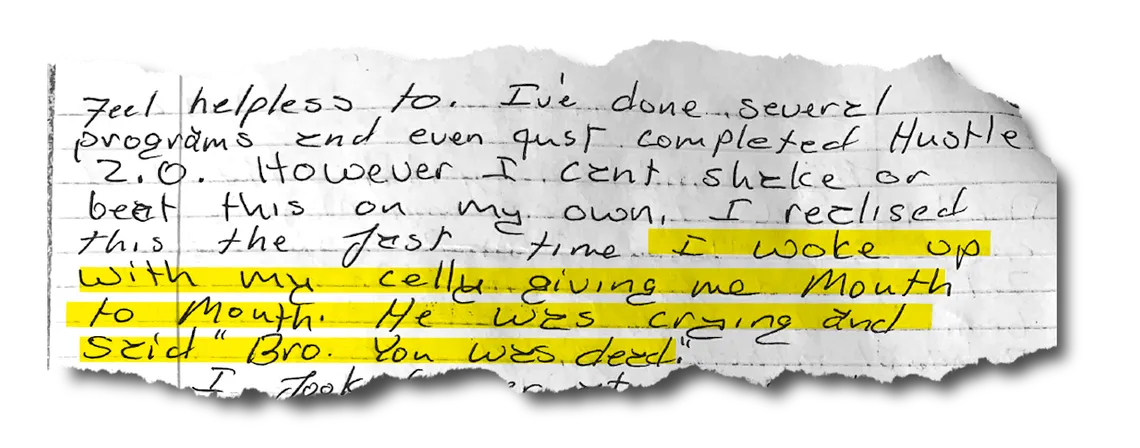 feel helpless to. I've done several
programs and even qust completed Hustle
2.0. However I cant shake or
beat this on my own. I realised
this the fast time I woke up
with my celly giving me Mouth
to Mouth. He was crying and
said "Bro. You was dead."
I took